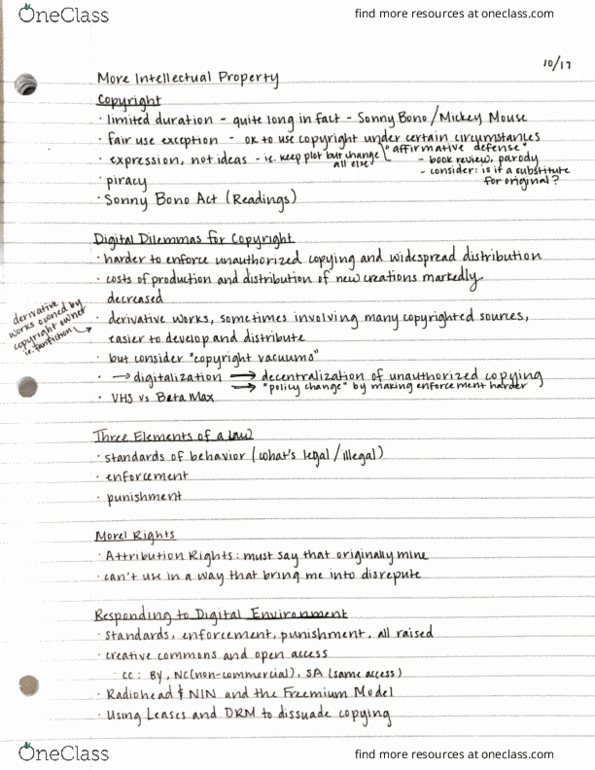 OneClass
find more resources at oneclass.com
10/17
More Intellectual Property
Copyright
· limited duration - quite long in fact - Sonny Bono/Mickey Mouse
· fair use exception - ok to use copyright under certain circumstances
"affirmative defense"
· expression, not ideas - ie. keep plot but change all else
- book review, parody
- consider: is it a substitute for original?
· piracy
· Sonny Bono Act (Readings)
Digital Dilemmas for Copyright
· harder to enforce unauthorized copying and widespread distribution
· costs of production and distribution of new creations markedly
decreased
derivative
works owned by
copyright owner
i.e. fanfiction
· derivative works, sometimes involving many copyrighted sources,
easier to develop and distribute
· but consider "copyright vacuums"
· → digitalization → decentralization of unauthorized copying
→ "policy change" by making enforcement harder
· VHS vs Beta Max
Three Elements of a Law
· standards of behavior (what's legal/illegal)
· enforcement
· punishment
Morel Rights
· Attribution Rights: must say that originally mine
· can't use in a way that bring me into disrepute
Responding to Digital Environment
· standards, enforcement, punishment, all raised
· creative commons and open access
· cc: By, NC(non-commercial), SA (same access)
· Radiohead & NIN and the Freemium Model
· Using Leases and DRM to dissuade copying
OneClass
find more resources at oneclass.com